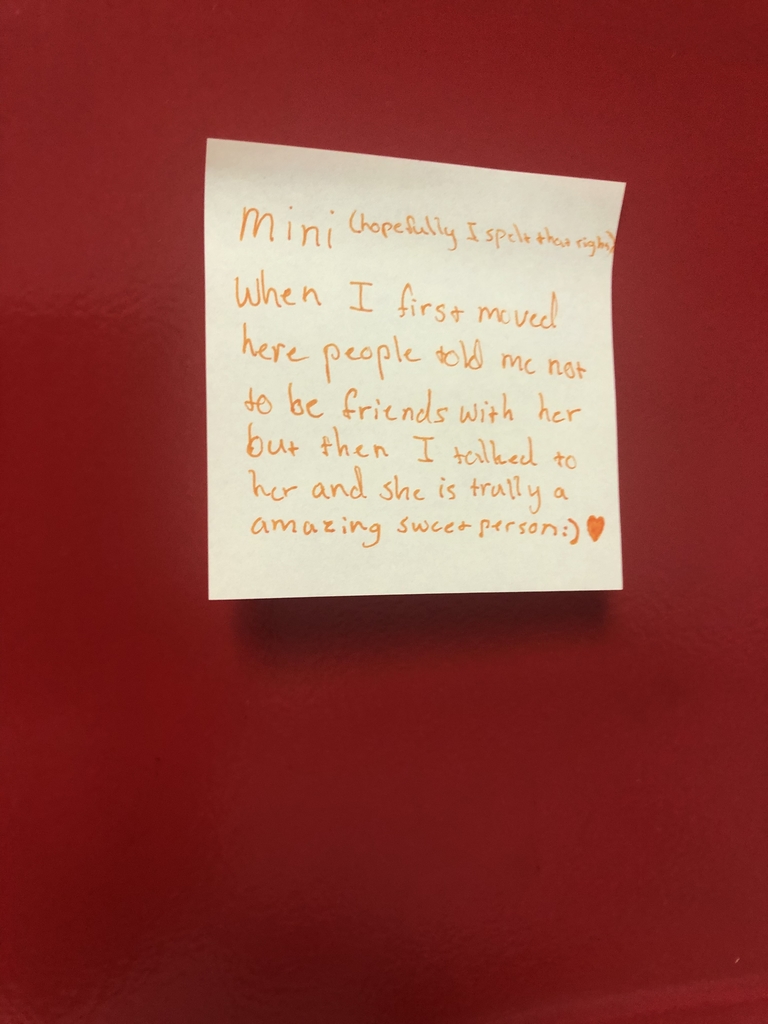 Mini (hopefully I spelt that right)
When I first moved
here people told me not
to be friends with her
but then I talked to
her and she is trully a
amazing sweet person:) ♥